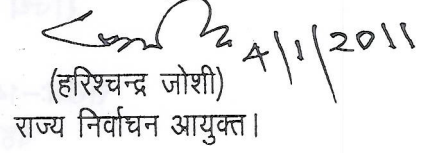 4/1/2011
(हरिश्चन्द्र जोशी)
राज्य निर्वाचन आयुक्त।